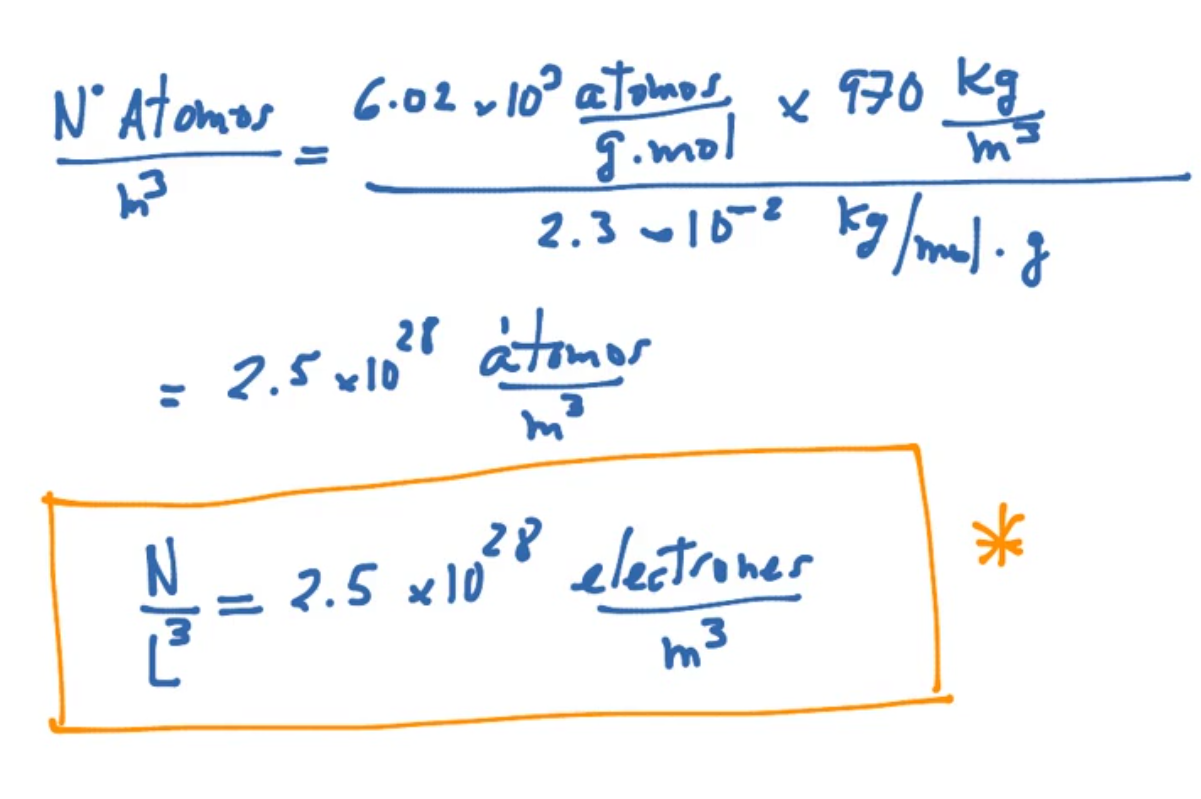 N° Átomos / m³ = 6.02 × 10³ atomos / g.mol × 970 Kg / m³
2.3 × 10⁻² Kg/mol.g
= 2.5 × 10²⁸ átomos / m³
N / L³ = 2.5 × 10²⁸ electrones / m³ *